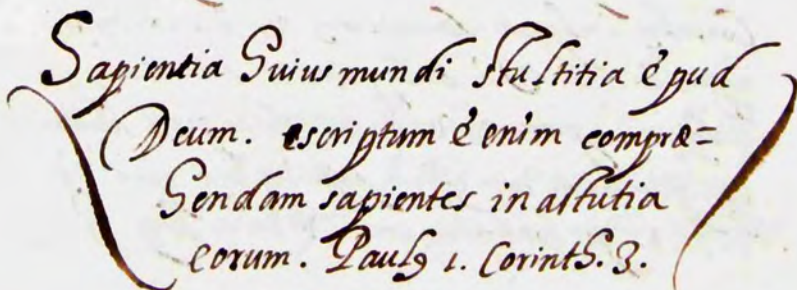 Sapientia huius mundi stultitia ē apud
Deum. escriptum ē enim compræ=
hendam sapientes in astutia
eorum. Paulꝰ 1. Corinth. 3.